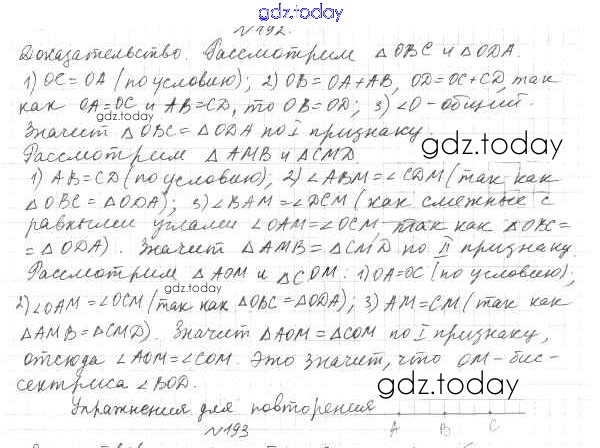 gdz.today
№192.
Доказательство. Рассмотрим △OBC и △ODA.
1) OC=OA (по условию); 2) OB=OA+AB, OD=OC+CD, так
как OA=OC и AB=CD, то OB=OD; 3) ∠O-общий.
gdz.today
Значит △OBC=△ODA по I признаку.
gdz.today
Рассмотрим △AMB и △CMD.
1) AB=CD (по условию); 2) ∠ABM=∠CDM (так как
△OBC=△ODA); 3) ∠BAM=∠DCM (как смежные с
равными углами ∠OAM=∠OCM, так как △OBC=
=△ODA). Значит △AMB=△CMD по II признаку.
Рассмотрим △AOM и △COM: 1) OA=OC (по условию);
gdz.today
2) ∠OAM=∠OCM (так как △OBC=△ODA); 3) AM=CM (так как
△AMB=△CMD). Значит △AOM=△COM по I признаку,
отсюда ∠AOM=∠COM. Это значит, что OM-бис-
сектриса ∠BOD.
gdz.today
Упражнения для повторения
№193
A B C
gdz.today